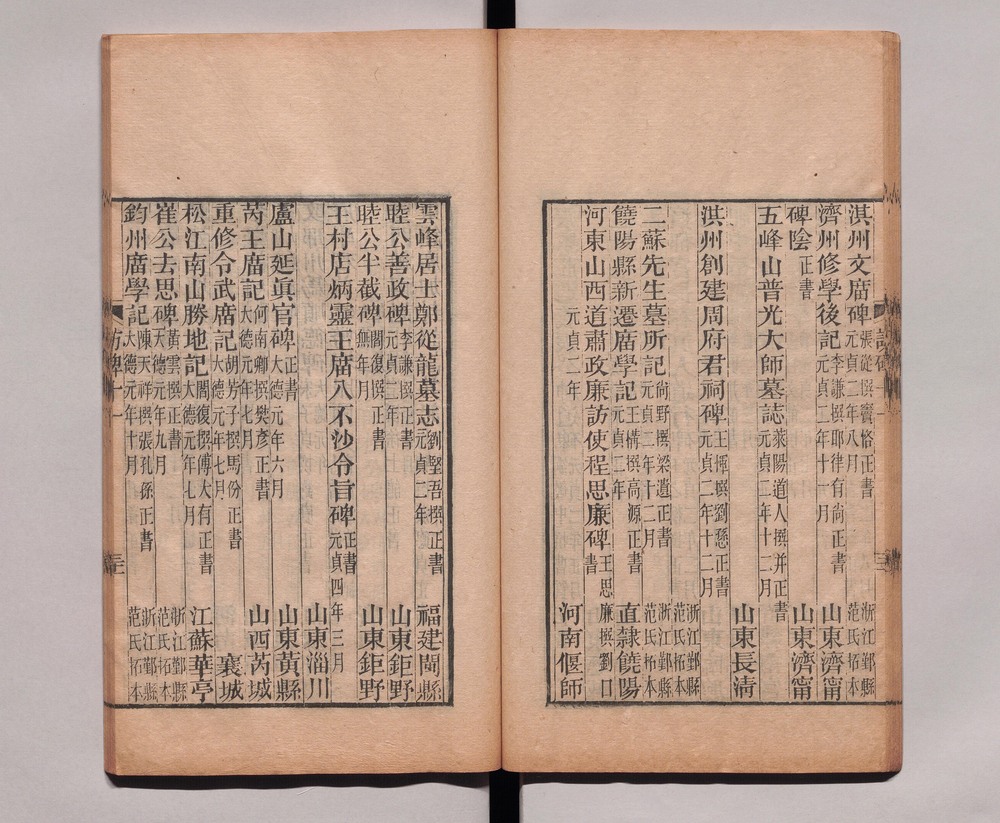 淇州文庿碑 張從撰竇恪正書 元貞二年八月 浙江鄞縣范氏拓本
濟州修學後記 李謙撰耶律有尚正書 元貞二年十一月 山東濟甯
碑陰 正書 山東濟甯
五峰山普光大師墓誌 萊陽道人撰并正書 元貞二年十二月 山東長淸
淇州創建周府君祠碑 王惲撰劉懸正書 元貞二年十二月 浙江鄞縣范氏拓本
二蘇先生墓所記 尚野撰梁遺正書 元貞二年十二月 浙江鄞縣范氏拓本
饒陽縣新遷庿學記 王構撰高源正書 元貞二年 直隸饒陽
河東山西道肅政廉訪使程思廉碑 王思廉撰劉口書 元貞二年 河南偃師
雲峰居士鄭從龍墓志 劉堅吾撰正書 元貞二年 福建閩縣
睦公善政碑 李謙撰正書 元貞三年 山東鉅野
睦公半截碑 閻復撰正書 無年月 山東鉅野
王村店炳靈王庿八不沙令旨碑 正書 元貞四年三月 山東淄川
盧山延眞宮碑 正書 大德元年六月 山東黃縣
芮王庿記 何南卿撰樊彥正書 大德元年七月 山西芮城
重修令武庿記 胡芳子撰馬份正書 大德元年七月 襄城
松江南山勝地記 閻復撰傅大有正書 大德元年七月 江蘇華亭
崔公去思碑 黃雲撰正書 大德元年九月 浙江鄞縣范氏拓本
鈞州庿學記 陳天祥撰張孔孫正書 大德元年十月 浙江鄞縣范氏拓本